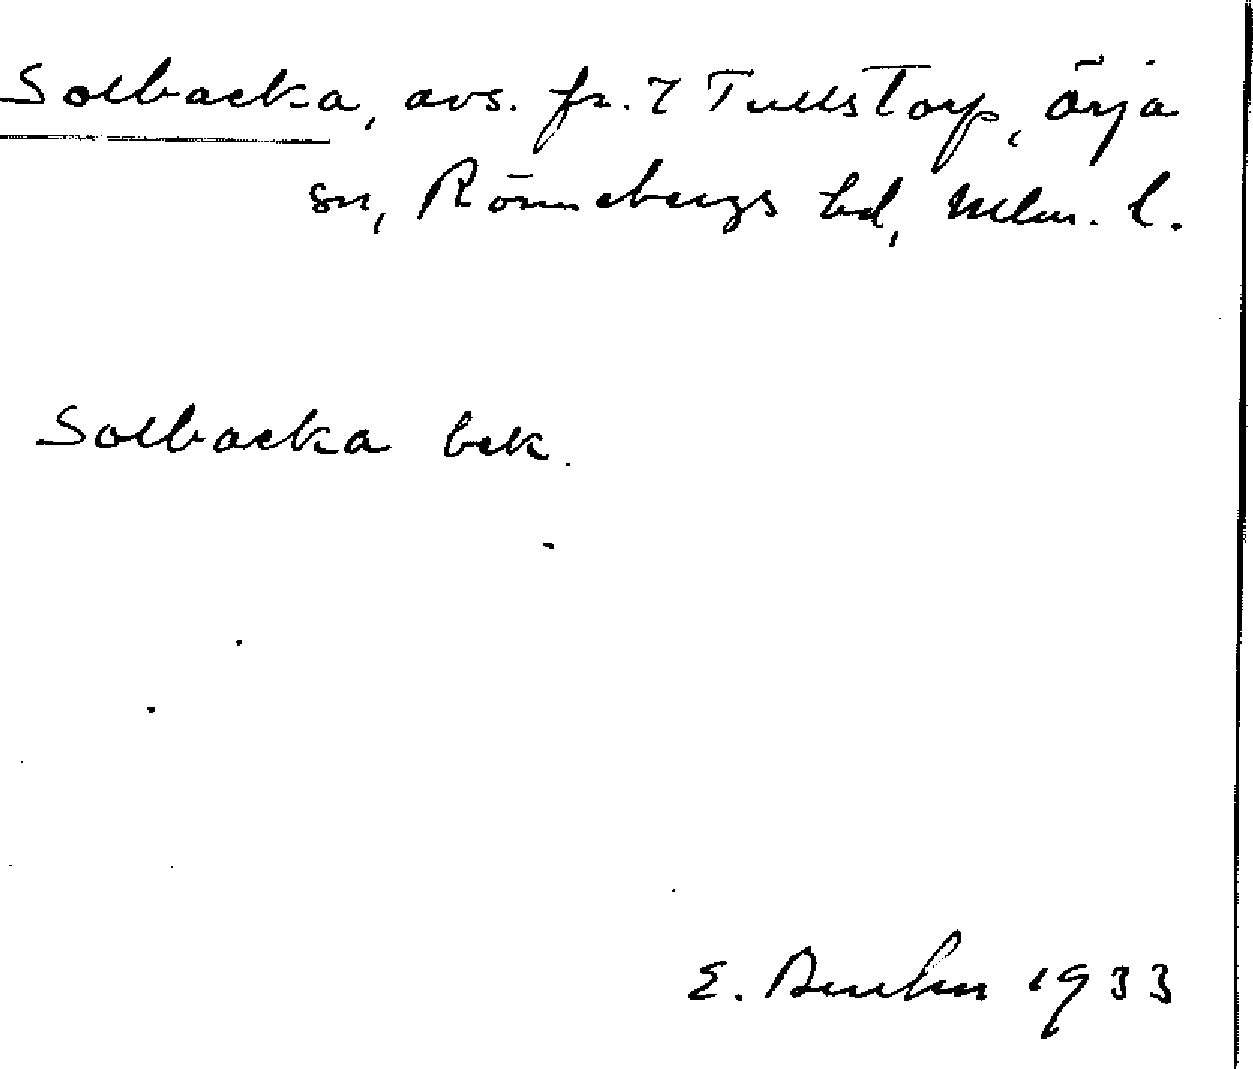 Solbacka, avs. fr. 7 Tullstorp, Örja
sn, Rönnebergs hd, Mlm. l.
Solbacka bek.
E. 1933